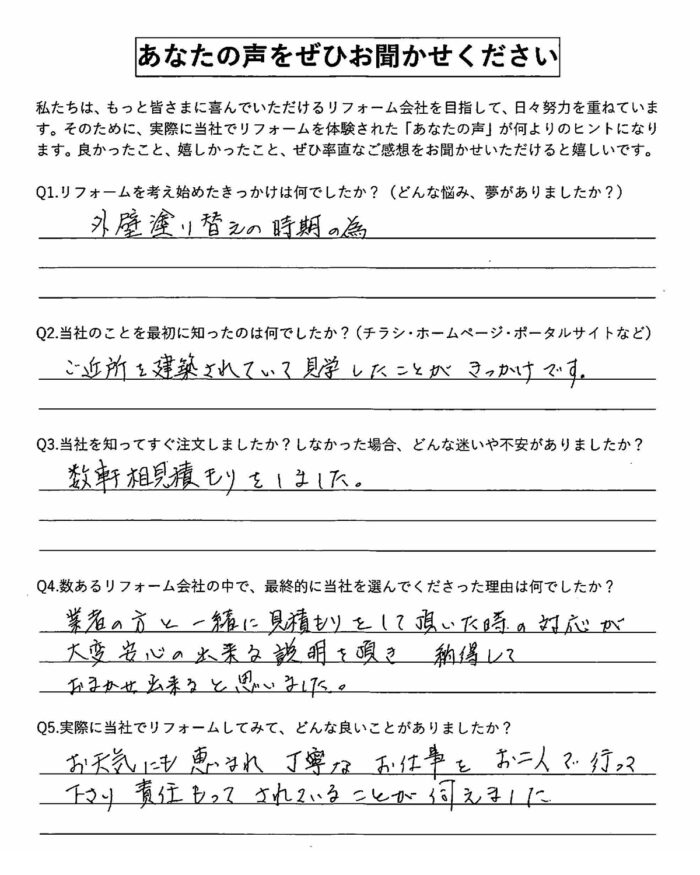 あなたの声をぜひお聞かせください
私たちは、もっと皆さまに喜んでいただけるリフォーム会社を目指して、日々努力を重ねていま
す。そのために、実際に当社でリフォームを体験された「あなたの声」が何よりのヒントになり
ます。良かったこと、嬉しかったこと、ぜひ率直なご感想をお聞かせいただけると嬉しいです。
Q1.リフォームを考え始めたきっかけは何でしたか？（どんな悩み、夢がありましたか？）
外壁塗り替えの時期の為
Q2.当社のことを最初に知ったのは何でしたか？（チラシ・ホームページ・ポータルサイトなど）
ご近所を建築されていて見学したことがきっかけです。
Q3.当社を知ってすぐ注文しましたか？しなかった場合、どんな迷いや不安がありましたか？
数軒相見積もりをしました。
Q4.数あるリフォーム会社の中で、最終的に当社を選んでくださった理由は何でしたか？
業者の方と一緒に見積もりをして頂いた時の対応が
大変安心の出来る説明を頂き 納得して
おまかせ出来ると思いました。
Q5.実際に当社でリフォームしてみて、どんな良いことがありましたか？
お天気にも恵まれ 丁寧な お仕事を お二人で行って
下さり 責任もって されていることが伺えました